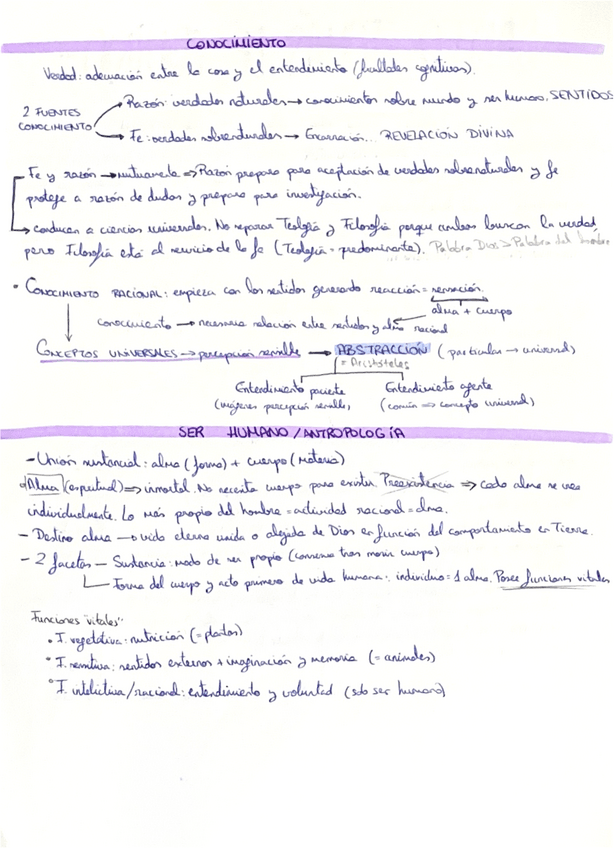 CONOCIMIENTO
Verdad: adecuación entre la cosa y el entendimiento (facultades cognitivas).
2 FUENTES CONOCIMIENTO
Razón: verdades naturales → conocimientos sobre mundo y ser humano. SENTIDOS
Fe: verdades sobrenaturales → Encarnación... REVELACIÓN DIVINA
Fe y razón → mutua ayuda ⇒ Razón prepara para aceptación de verdades sobrenaturales y fe
protege a razón de dudas y prepara para investigación.
→ conducen a ciencias universales. No separar Teología y Filosofía porque ambas buscan la verdad,
pero Filosofía está al servicio de la fe (Teología = predominante). Palabra Dios > Palabra del hombre
• CONOCIMIENTO RACIONAL: empieza con los sentidos generando reacción = sensación.
alma + cuerpo
conocimiento → necesaria relación entre sentidos y alma racional
CONCEPTOS UNIVERSALES → percepción sensible → ABSTRACCIÓN (particular → universal)
= Aristóteles
Entendimiento paciente Entendimiento agente
(imágenes percepción sensible) (común ⇒ concepto universal)
SER HUMANO/ANTROPOLOGÍA
- Unión sustancial: alma (forma) + cuerpo (materia)
Alma (espiritual) ⇒ inmortal. No necesita cuerpo para existir. Preexistencia ⇒ cada alma se crea
individualmente. Lo más propio del hombre = actividad racional = alma.
- Destino alma → vida eterna unida o alejada de Dios en función del comportamiento en Tierra.
- 2 facetas — Sustancia: modo de ser propio (conserva tras morir cuerpo)
Forma del cuerpo y acto primero de vida humana: individuo = 1 alma. Posee funciones vitales
Funciones "vitales"
• F. vegetativa: nutrición (= plantas)
• F. sensitiva: sentidos externos + imaginación y memoria (= animales)
• F. intelectiva/racional: entendimiento y voluntad (solo ser humano)